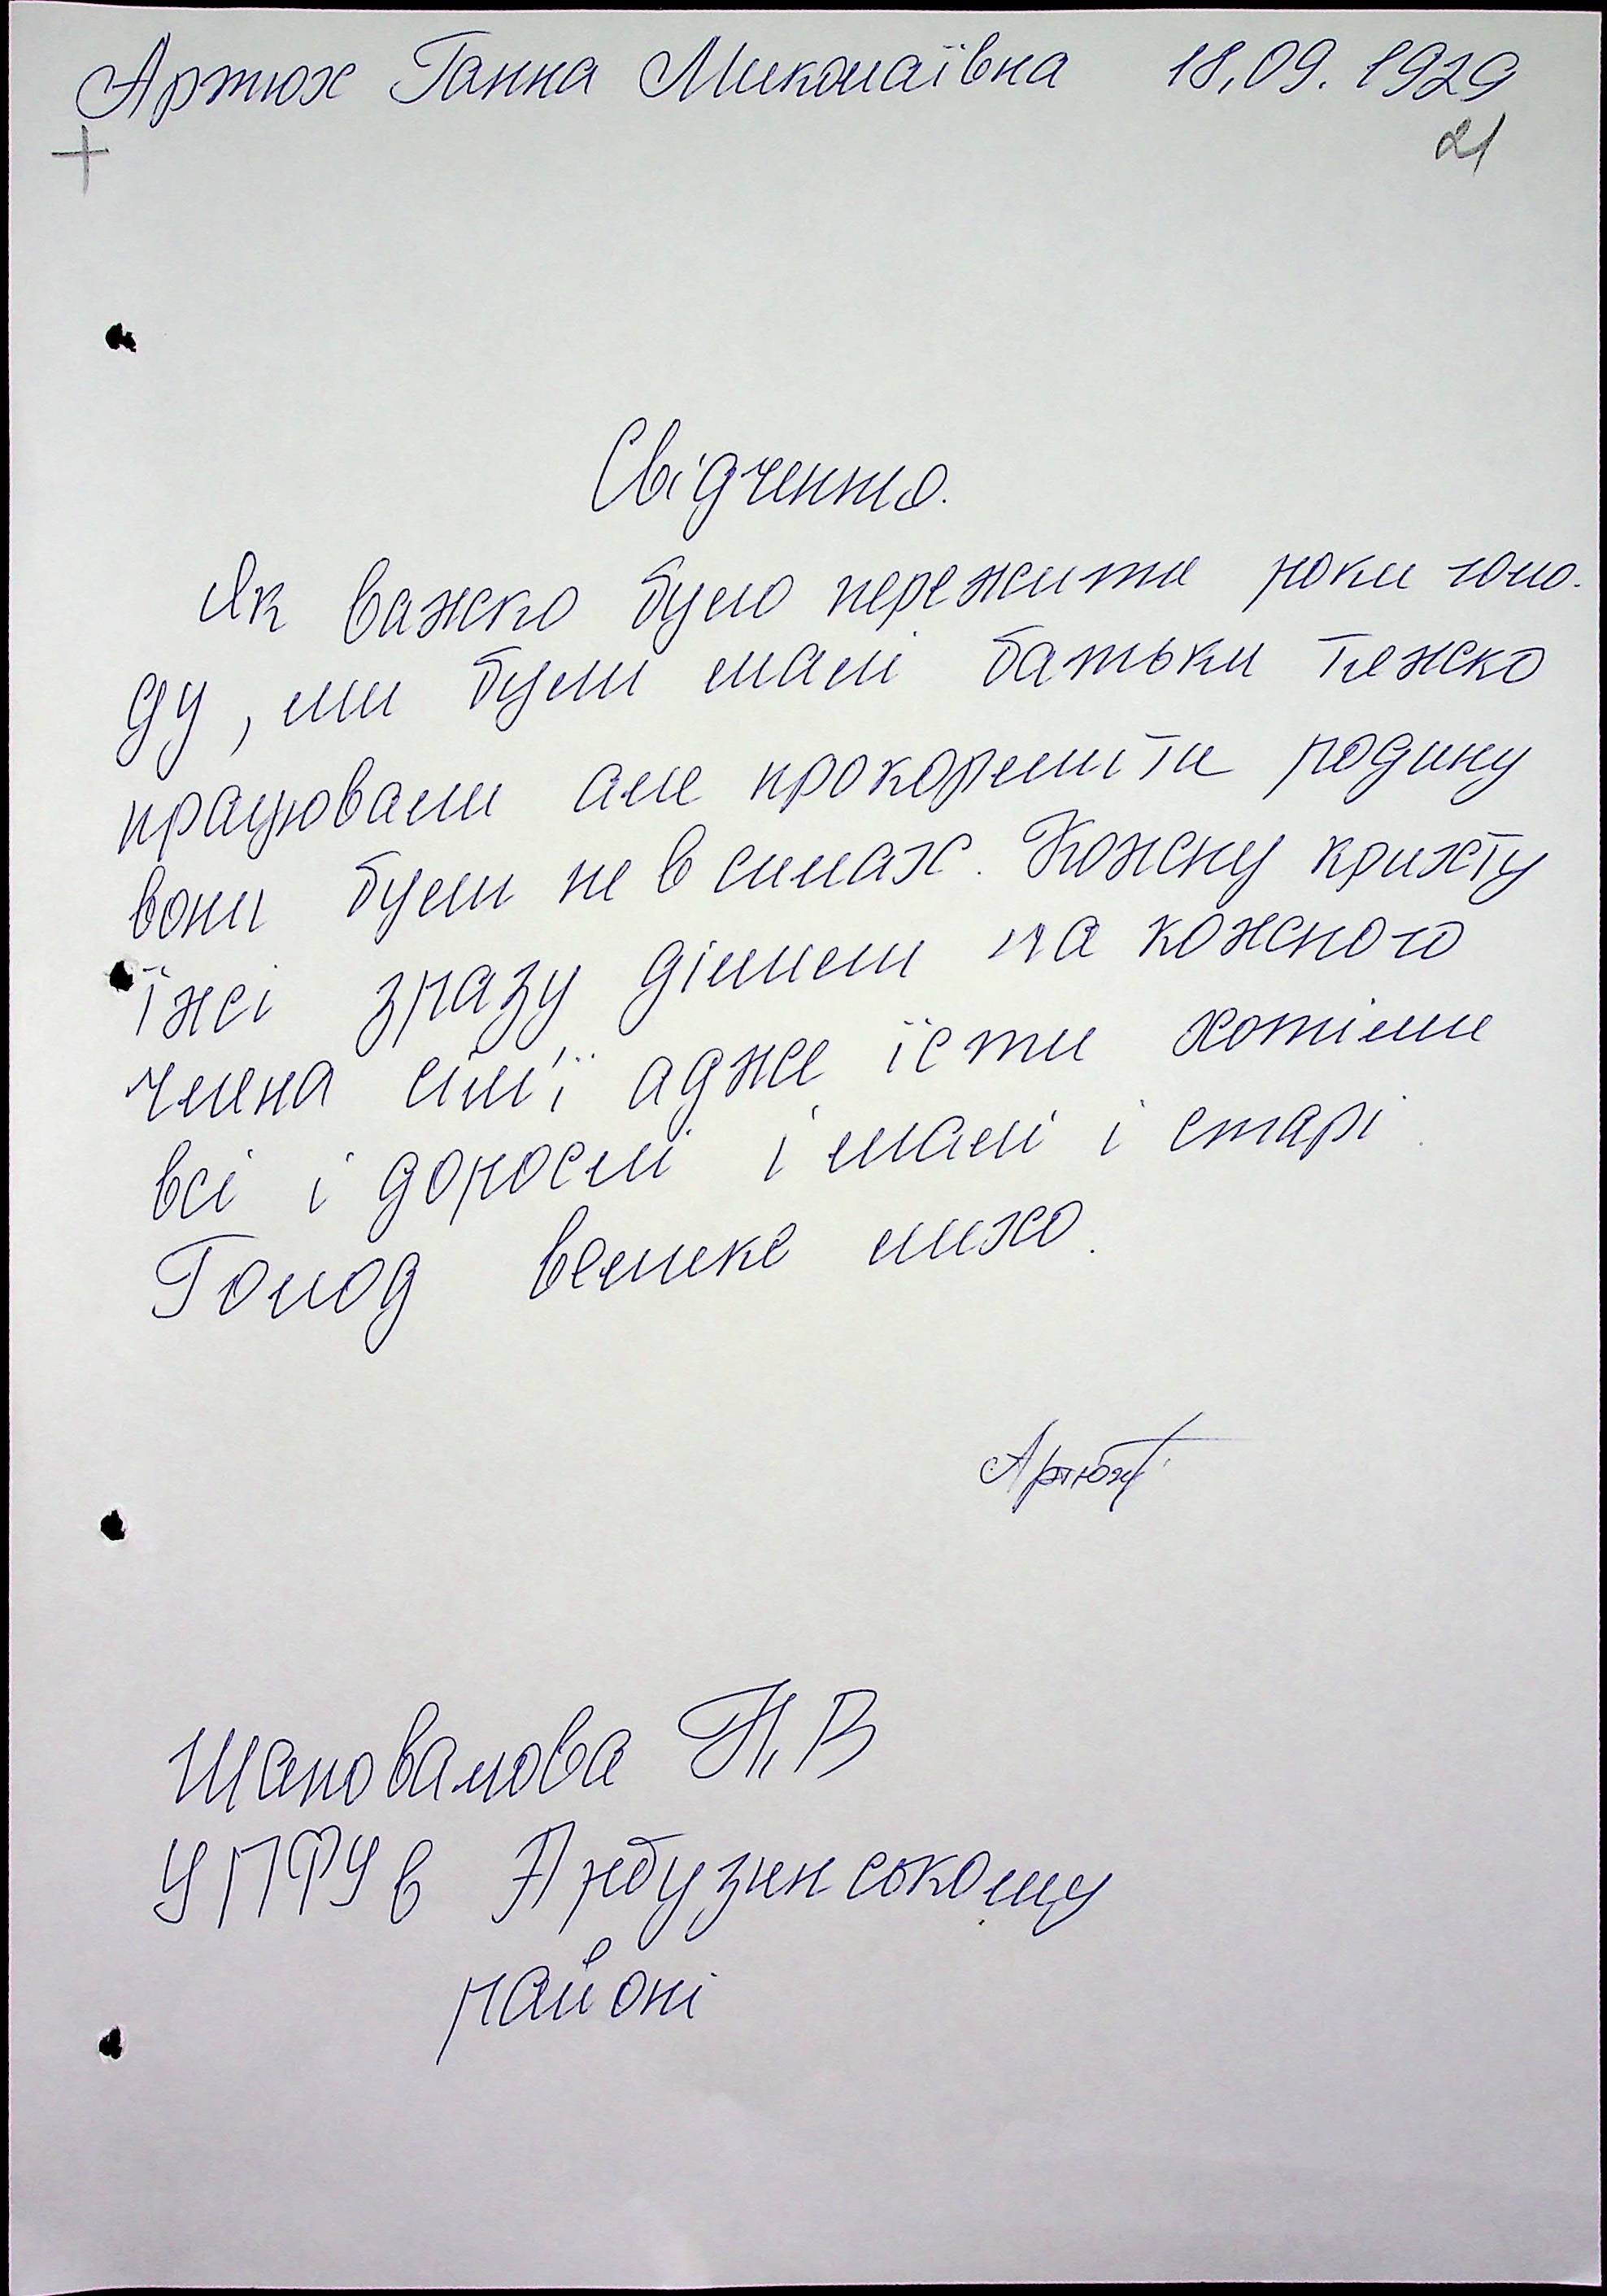 Артюх Ганна Миколаївна 18.09.1929
+ 21
Свідчення.
Як важко було пережити роки голо-
ду, ми були малі батьки тяжко
працювали але прокорміти родину
вони були не в силах. Кожну крихту
їжі зразу ділили на кожного
члена сім'ї адже їсти хотіли
всі і дорослі і малі і старі.
Голод велике лихо.
Артюх
Шаповалова Н.В
УПФУ в Арбузинському
районі